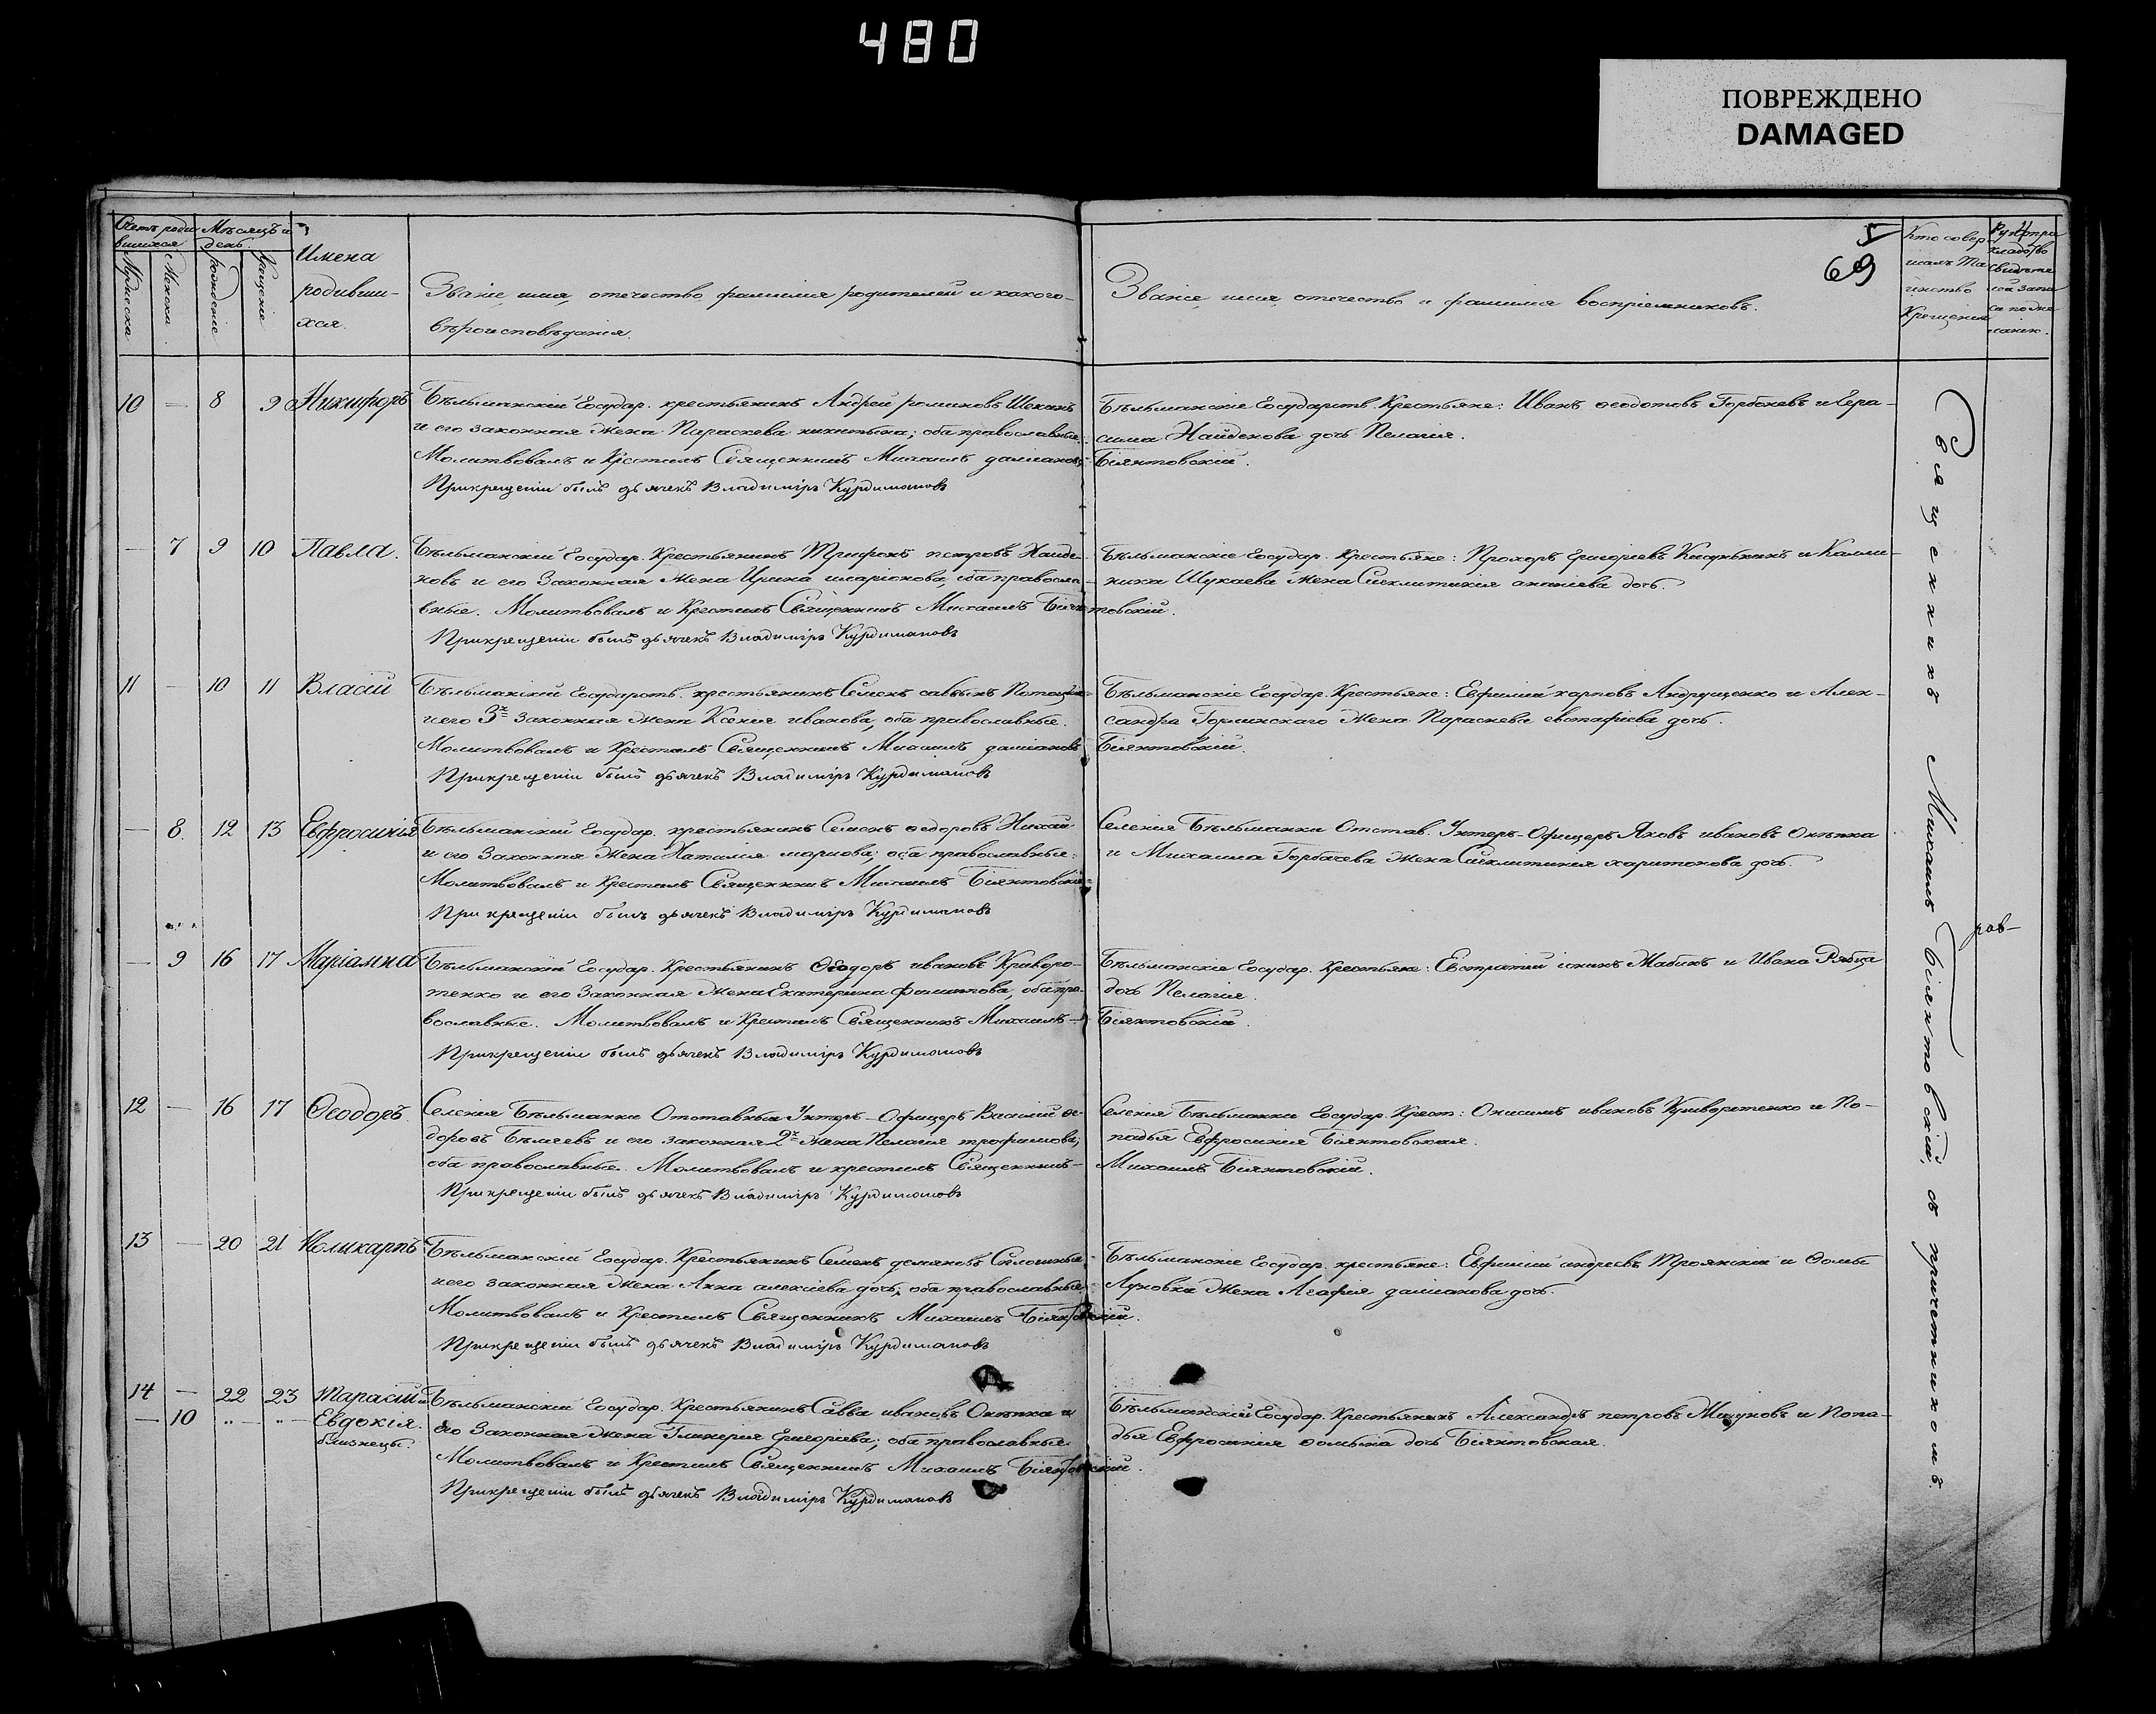 480
ПОВРЕЖДЕНО
DAMAGED
5
69
Счетъ роди
вшихся
Мужеска
Женска.
Мѣсяцъ и
день.
Рожденіе
Крещеніе
Имена
родивши-
хся.
Званіе имя, отечество фамилія родителей и какого-
вѣроисповѣданія.
Званіе имя, отечество и фамилія воспріемниковъ.
Кто совер-
шалъ Та
инство
Крещенія
10 — 8 9 Никифоръ
Бѣльманскій Государ. крестьянинъ Андрей романовъ
и его законная жена Параскева никитина; оба православные.
Молитвовалъ и Крестилъ Священникъ Михаилъ даміановъ
Прикрещеніи былъ дьячекъ Владиміръ Курдимановъ
Бѣльманскіе Государств. Крестьяне: Иванъ ѳеодотовъ Горбачевъ и Гера-
сима Найденова дочь Пелагія.
Біянтовскій.
— 7 9 10 Павла.
Бѣльманскій Государ. Крестьянинъ Трифонъ петровъ Найде-
новъ и его Законная жена Ирина иларіонова, оба правосла-
вные. Молитвовалъ и Крестилъ Священникъ Михаилъ Біян-
товскій.
Прикрещеніи былъ дьячекъ Владиміръ Курдимановъ
Бѣльманскіе Государ. Крестьяне: Прохоръ григоріевъ и Калли-
ника Шукаева жена Сигклитикія ананіева дочь.
11 — 10 11 Власій
Бѣльманскій Государств. крестьянинъ Семенъ савинъ
и его 3я законная жена Ксенія иванова, оба православные.
Молитвовалъ и Крестилъ Священникъ Михаилъ даміановъ
Прикрещеніи былъ дьячекъ Владиміръ Курдимановъ
Бѣльманскіе Государ. Крестьяне: Евфимій карповъ Андрущенко и Алек-
сандра Горлинскаго жена Параскева евстафіева дочь.
Біянтовскій.
— 8. 12 13 Евфросинія
Бѣльманскій Государ. крестьянинъ Семенъ ѳедоровъ
и его Законная жена Наталія маркова; оба православные:
Молитвовалъ и Крестилъ Священникъ Михаилъ Біянтовскій
При крещеніи былъ дьячекъ Владиміръ Курдимановъ
Селенія Бѣльманки Отстав. Унтеръ-Офицеръ Яковъ ивановъ Окѣпка
и Михаила Горбачева жена Сигклитикія харитонова дочь
9 16 17 Маріамна
Бѣльманскій Государ. Крестьянинъ Ѳеодоръ ивановъ Криворо-
тенко и его Законная жена Екатерина филипова, оба пра-
вославные. Молитвовалъ и Крестилъ Священникъ Михаилъ —
Прикрещеніи былъ дьячекъ Владиміръ Курдимановъ
Бѣльманскіе Государ. Крестьяне: Евстратій Жабинъ и Ивана Рябца
дочь Пелагія.
Біянтовскій.
12 — 16 17 Ѳеодоръ.
Селенія Бѣльманки Отставный Унтеръ-Офицеръ Василій ѳе-
доровъ Бѣляевъ и его законная 2я жена Пелагія трофимова;
оба православные. Молитвовалъ и крестилъ Священникъ —
Прикрещеніи былъ дьячекъ Владиміръ Курдимановъ
Селенія Бѣльманки Государ. Крест: Онисимъ ивановъ Криворотенко и По-
падья Евфросинія Біянтовская.
Михаилъ Біянтовскій.
13 — 20 21 Поликарпъ
Бѣльманскій Государ. Крестьянинъ Семенъ демяновъ
и его законная жена Анна алексіева дочь, оба православные
Молитвовалъ и Крестилъ Священникъ Михаилъ Біянтовскій.
Прикрещеніи былъ дьячекъ Владиміръ Курдимановъ
Бѣльманскіе Государ. крестьяне: Евфимій андреевъ Троянскій и Ѳомы
Луковка жена Агафія даміанова дочь.
14 — 22 23 Тарасій и
— 10 " — " — Евдокія.
близнецы.
Бѣльманскій Государ. Крестьянинъ Савва ивановъ Окѣпка и
его Законная жена Гликерія григоріева; оба православные
Молитвовалъ и Крестилъ Священникъ Михаилъ Біянтовскій.
Прикрещеніи былъ дьячекъ Владиміръ Курдимановъ
Бѣльманскій Государ. Крестьянинъ Александръ петровъ и Попа-
дья Евфросинія ѳомина дочь Біянтовская.
Священникъ Михаилъ Біянтовскій, съ причетникомъ.